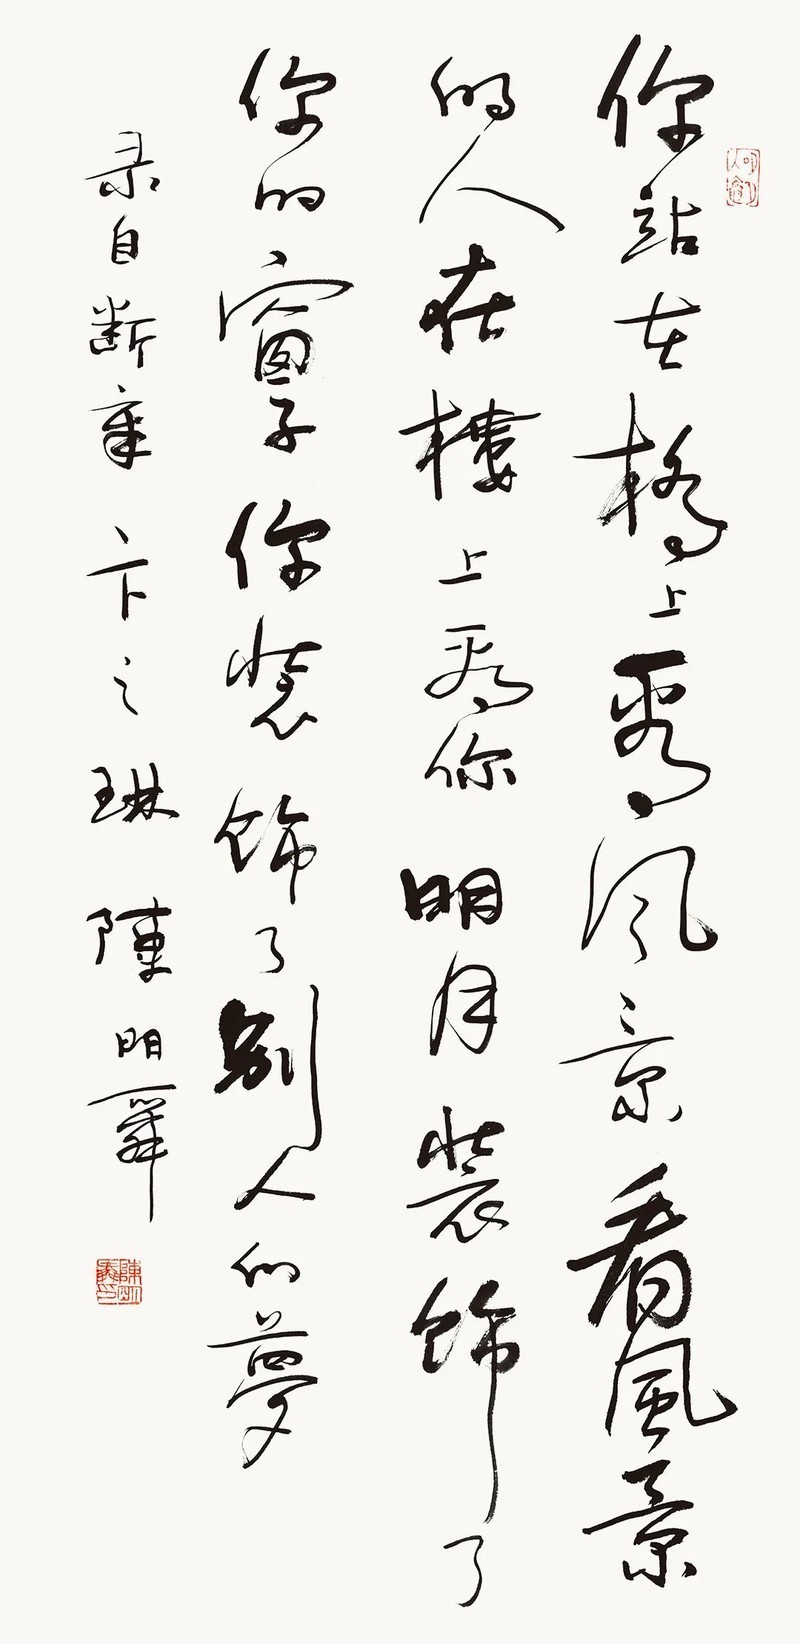 你站在橋上看风景看風景
的人在樓上看你明月装飾了
你的窗子你装飾了别人的夢
录自断章 卞之琳 陳明舜